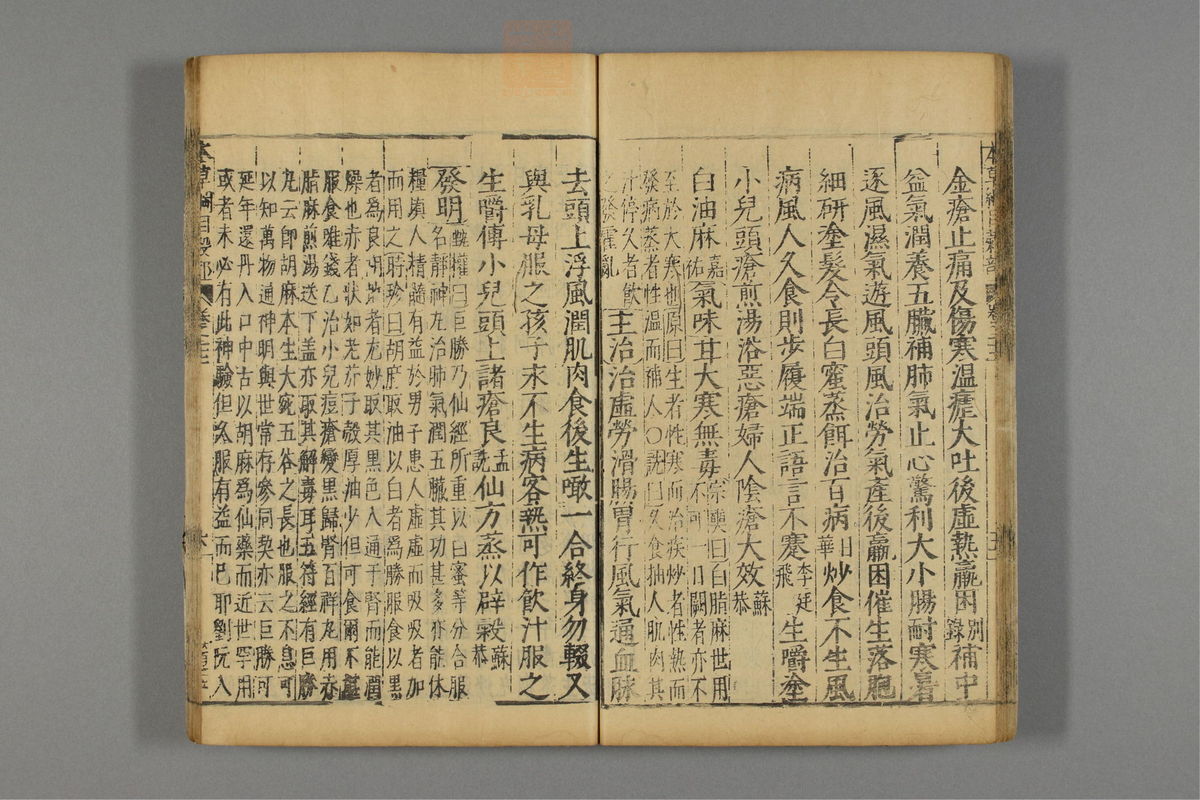 金瘡止痛及傷寒溫瘧大吐後虛熱羸困别錄補中
益氣潤養五臟補肺氣止心驚利大小腸耐寒暑
逐風濕氣遊風頭風治勞氣產後羸困催生落胞
細研塗髮令長白蜜蒸餌治百病日華炒食不生風
病風人久食則步履端正語言不蹇李廷飛生嚼塗
小兒頭瘡煎湯浴惡瘡婦人陰瘡大效蘇恭
白油麻嘉佑氣味甘大寒無毒宗奭曰白脂麻世用不可一日闕者亦不
至於大寒也原曰生者性寒而治疾炒者性熱而
發病蒸者性溫而補人○詵曰久食抽人肌肉其
汁停久者飲之發霍亂主治治虛勞滑腸胃行風氣通血脉
去頭上浮風潤肌肉食後生噉一合終身勿輟又
與乳母服之孩子末不生病客熱可作飲汁服之
生嚼傅小兒頭上諸瘡良孟詵仙方蒸以辟穀蘇恭
發明甄權曰巨勝乃仙經所重以白蜜等分合服
名靜神丸治肺氣潤五臟其功甚多亦能休
糧填人精髓有益於男子患人虛虛而吸吸者加
而用之時珍曰胡麻取油以白者為勝服食以黑
者為良胡地者尤妙取其黑色入通于腎而能潤
燥也赤者狀如老茄子殼厚油少但可食爾不堪
服食唯錢乙治小兒痘瘡變黑歸腎百祥丸用赤
脂麻煎湯送下蓋亦取其解毒耳五符經有巨勝
丸云即胡麻本生大宛五谷之長也服之不息可
以知萬物通神明與世常存參同契亦云巨勝可
延年還丹入口中古以胡麻為仙藥而近世罕用
或者未必有此神驗但久服有益而巳耶劉阮入
本草綱目穀部 卷之二十二